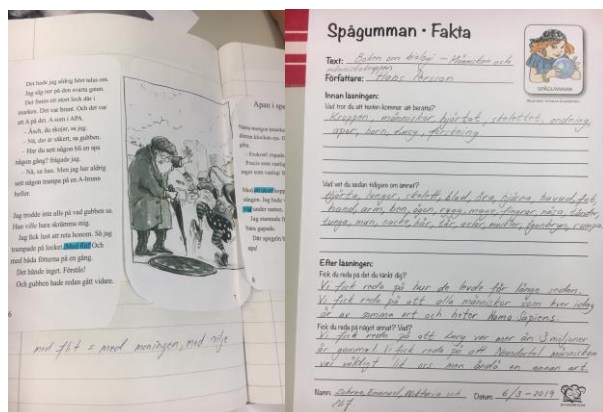 Det hade jag aldrig hört talas om.
Jag såg ner på den svarta gatan.
Det fanns ett stort lock där i
marken. Det var brunt. Och det var
ett A på det. A som i APA.
– Äsch, du skojar, sa jag.
– Nä, det är säkert, sa gubben.
– Har du sett någon bli en apa
någon gång? frågade jag.
– Nä, sa han. Men jag har aldrig
sett någon trampa på en A-brunn
heller.
Jag trodde inte alls på vad gubben sa.
Han ville bara skrämma mig.
Jag fick lust att reta honom. Så jag
trampade på locket. Med flit! Och
med båda fötterna på en gång.
Det hände inget. Förstås!
Och gubben hade redan gått vidare.
6
med flit = med meningen, med vilje
Apan i spe
Nästa morgon
Jag stannade
bara gapade.
Där spegeln
apa!
Spågumman • Fakta
Text: Boken om biologi – Människan och
människokroppen
Författare: Hans Persson
SPÅGUMMAN
Innan läsningen:
Vad tror du att texten kommer att berätta?
Kroppen, människor, hjärtat, skelettet, andning,
apor, barn, Lucy, forskning
Vad vet du sedan tidigare om ämnet?
Hjärta, lungor, skelett, blod, öra, hjärna, huvud, fot,
hand, arm, ben, ögon, rygg, mage, fingrar, näsa, tänder,
tunga, mun, nacke, hår, tår, axlar, muskler, ögonbryn, rumpa
Efter läsningen:
Fick du reda på det du tänkt dig?
Vi fick reda på hur de levde för länge sedan.
Vi fick reda på att alla människor som lever idag
är av samma art och heter Homo Sapiens.
Fick du reda på något annat? Vad?
Vi fick reda på att Lucy var mer än 3 miljoner
år gammal. Vi fick reda på att Neandertal människan
var väldigt lik oss men ändå en annan art.
Namn: Zahraa, Emanuel, Wiktoria och
Datum: 6/3 - 2019